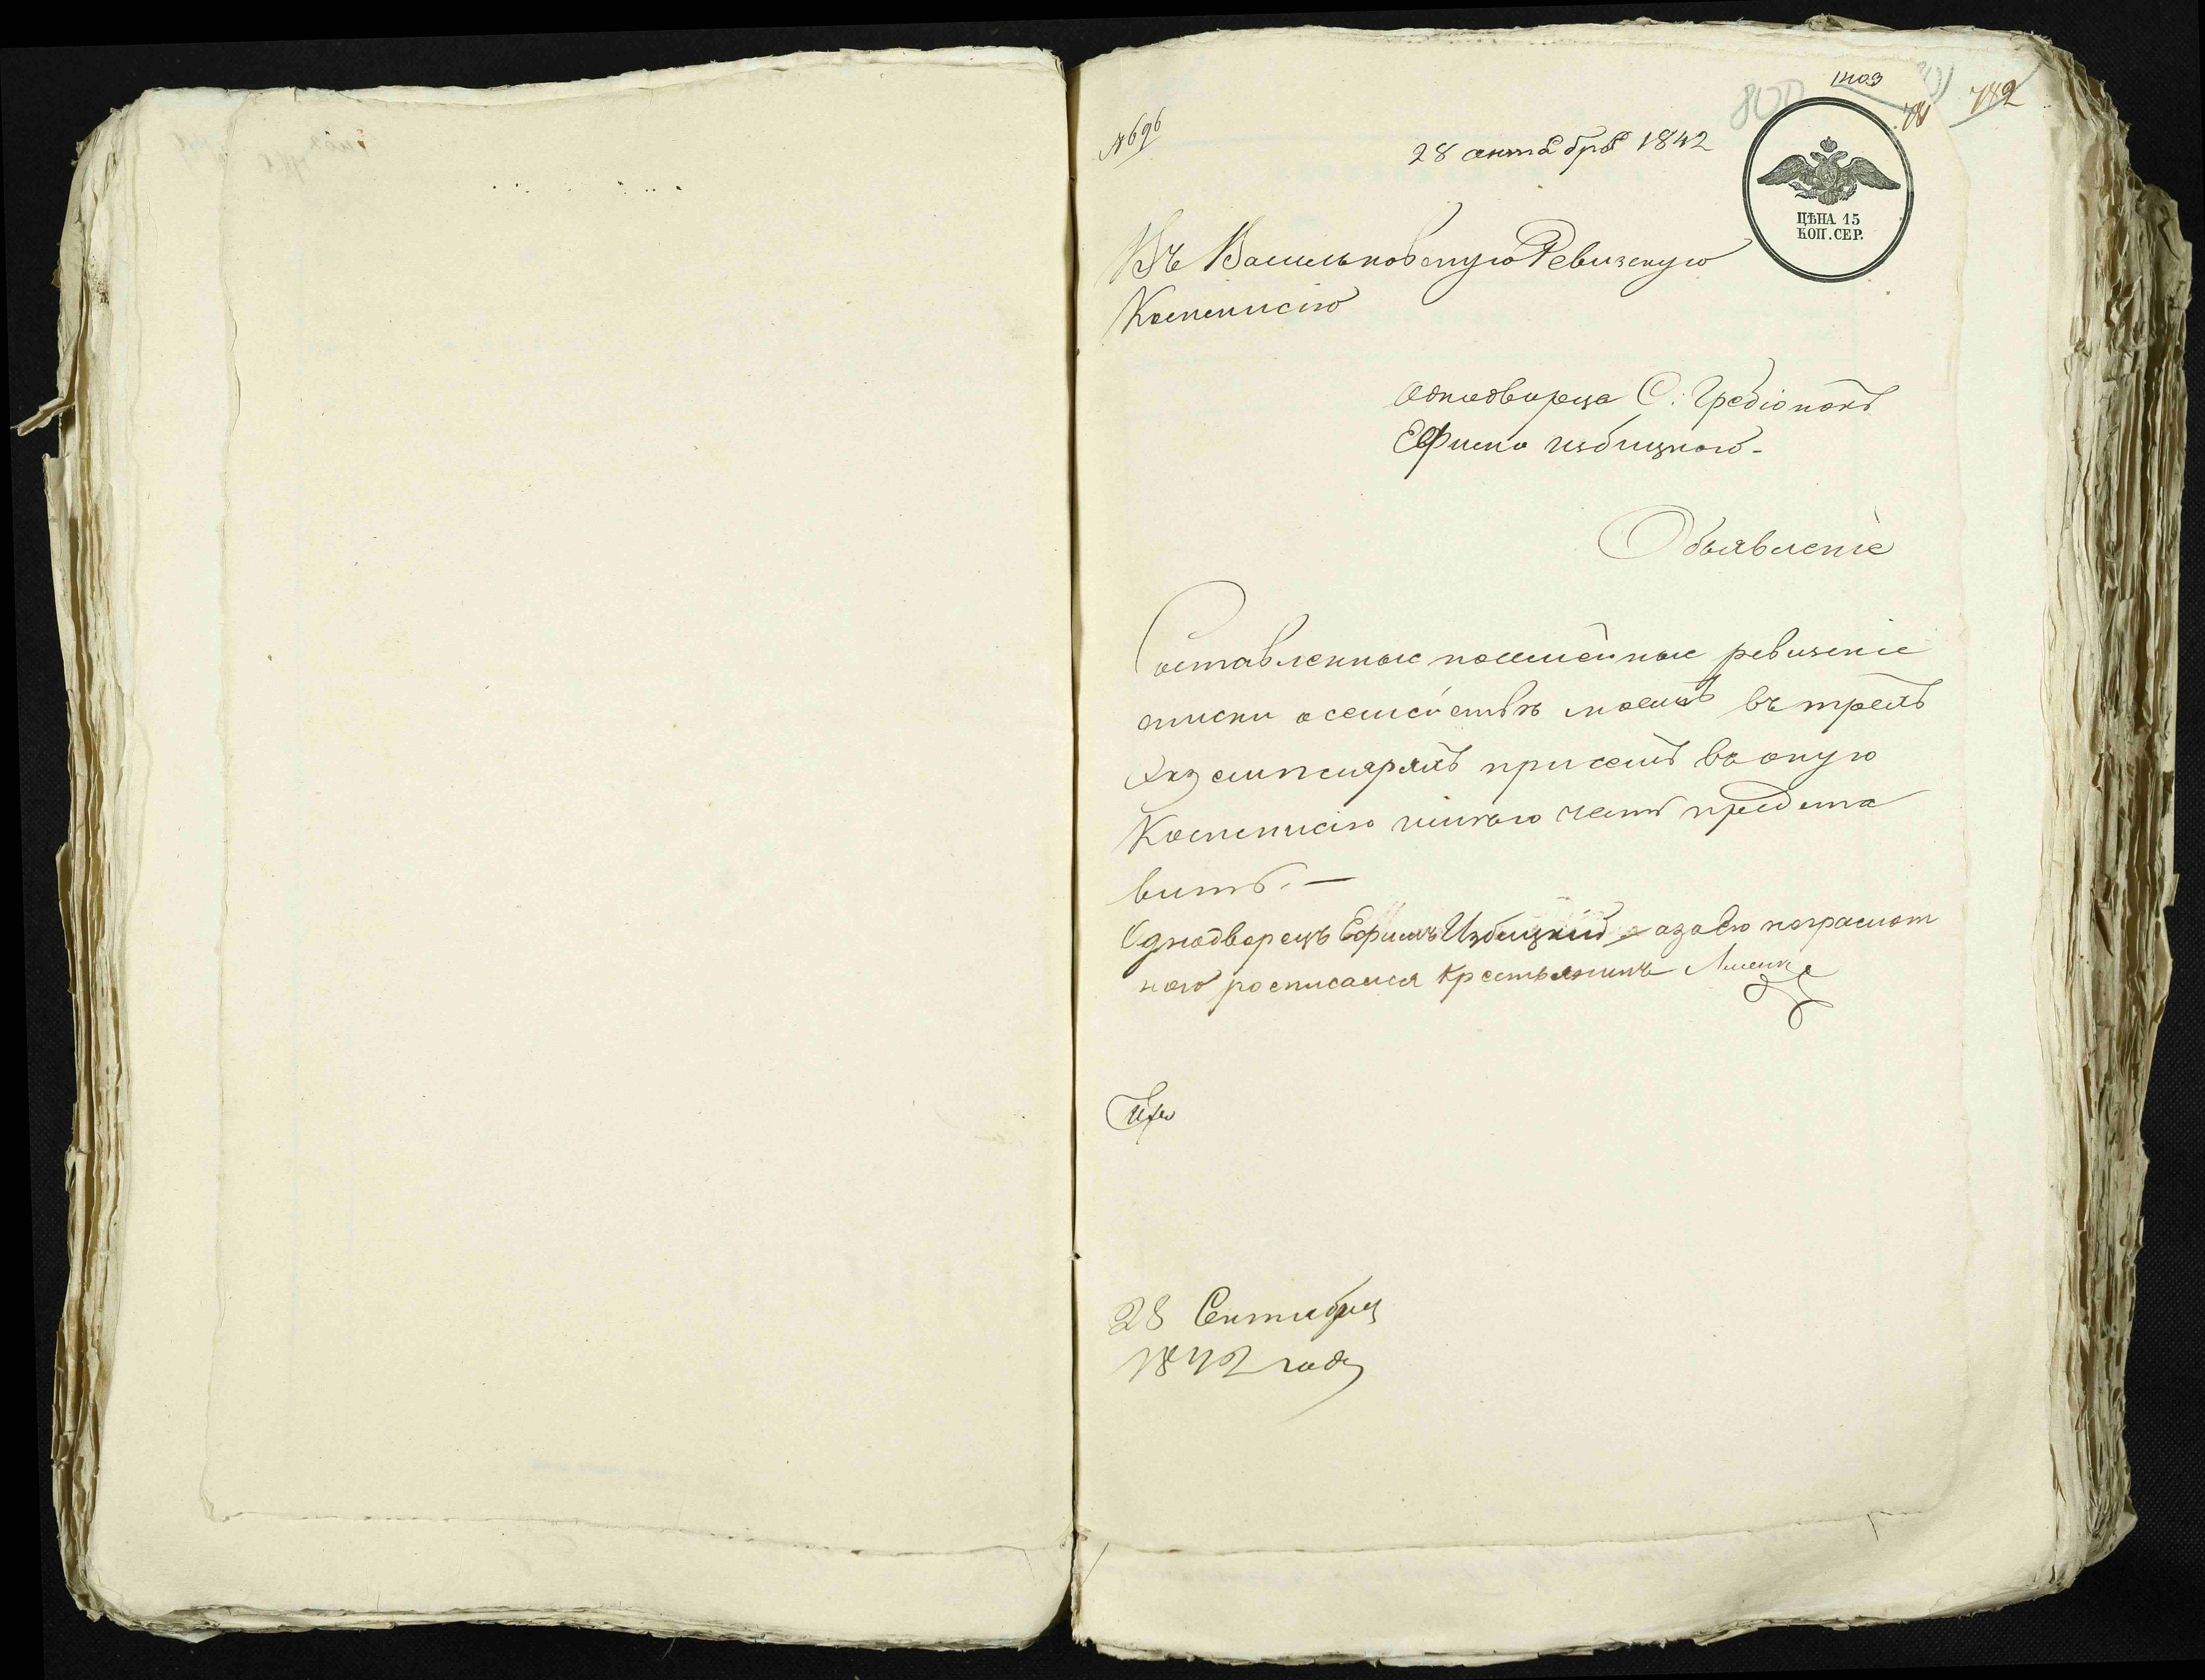 1403
800
782
№ 696
28 октября 1842
ЦѢНА 15
КОП. СЕР.
Въ Васильковскую Ревизскую
Коммисію
Однодворца С. Гребіонокъ
Ефима Избицкого -
Объявленіе
Составленные посемейные ревизскіе
списки о семействѣ моемъ въ трехъ
Экземплярахъ при семъ въ оную
Коммисію имѣю честь предста
вить. —
Однодворецъ Ефимъ Избицкій а за его неграмот
ного росписался Крестьянинъ
28 Сентября
1842 года